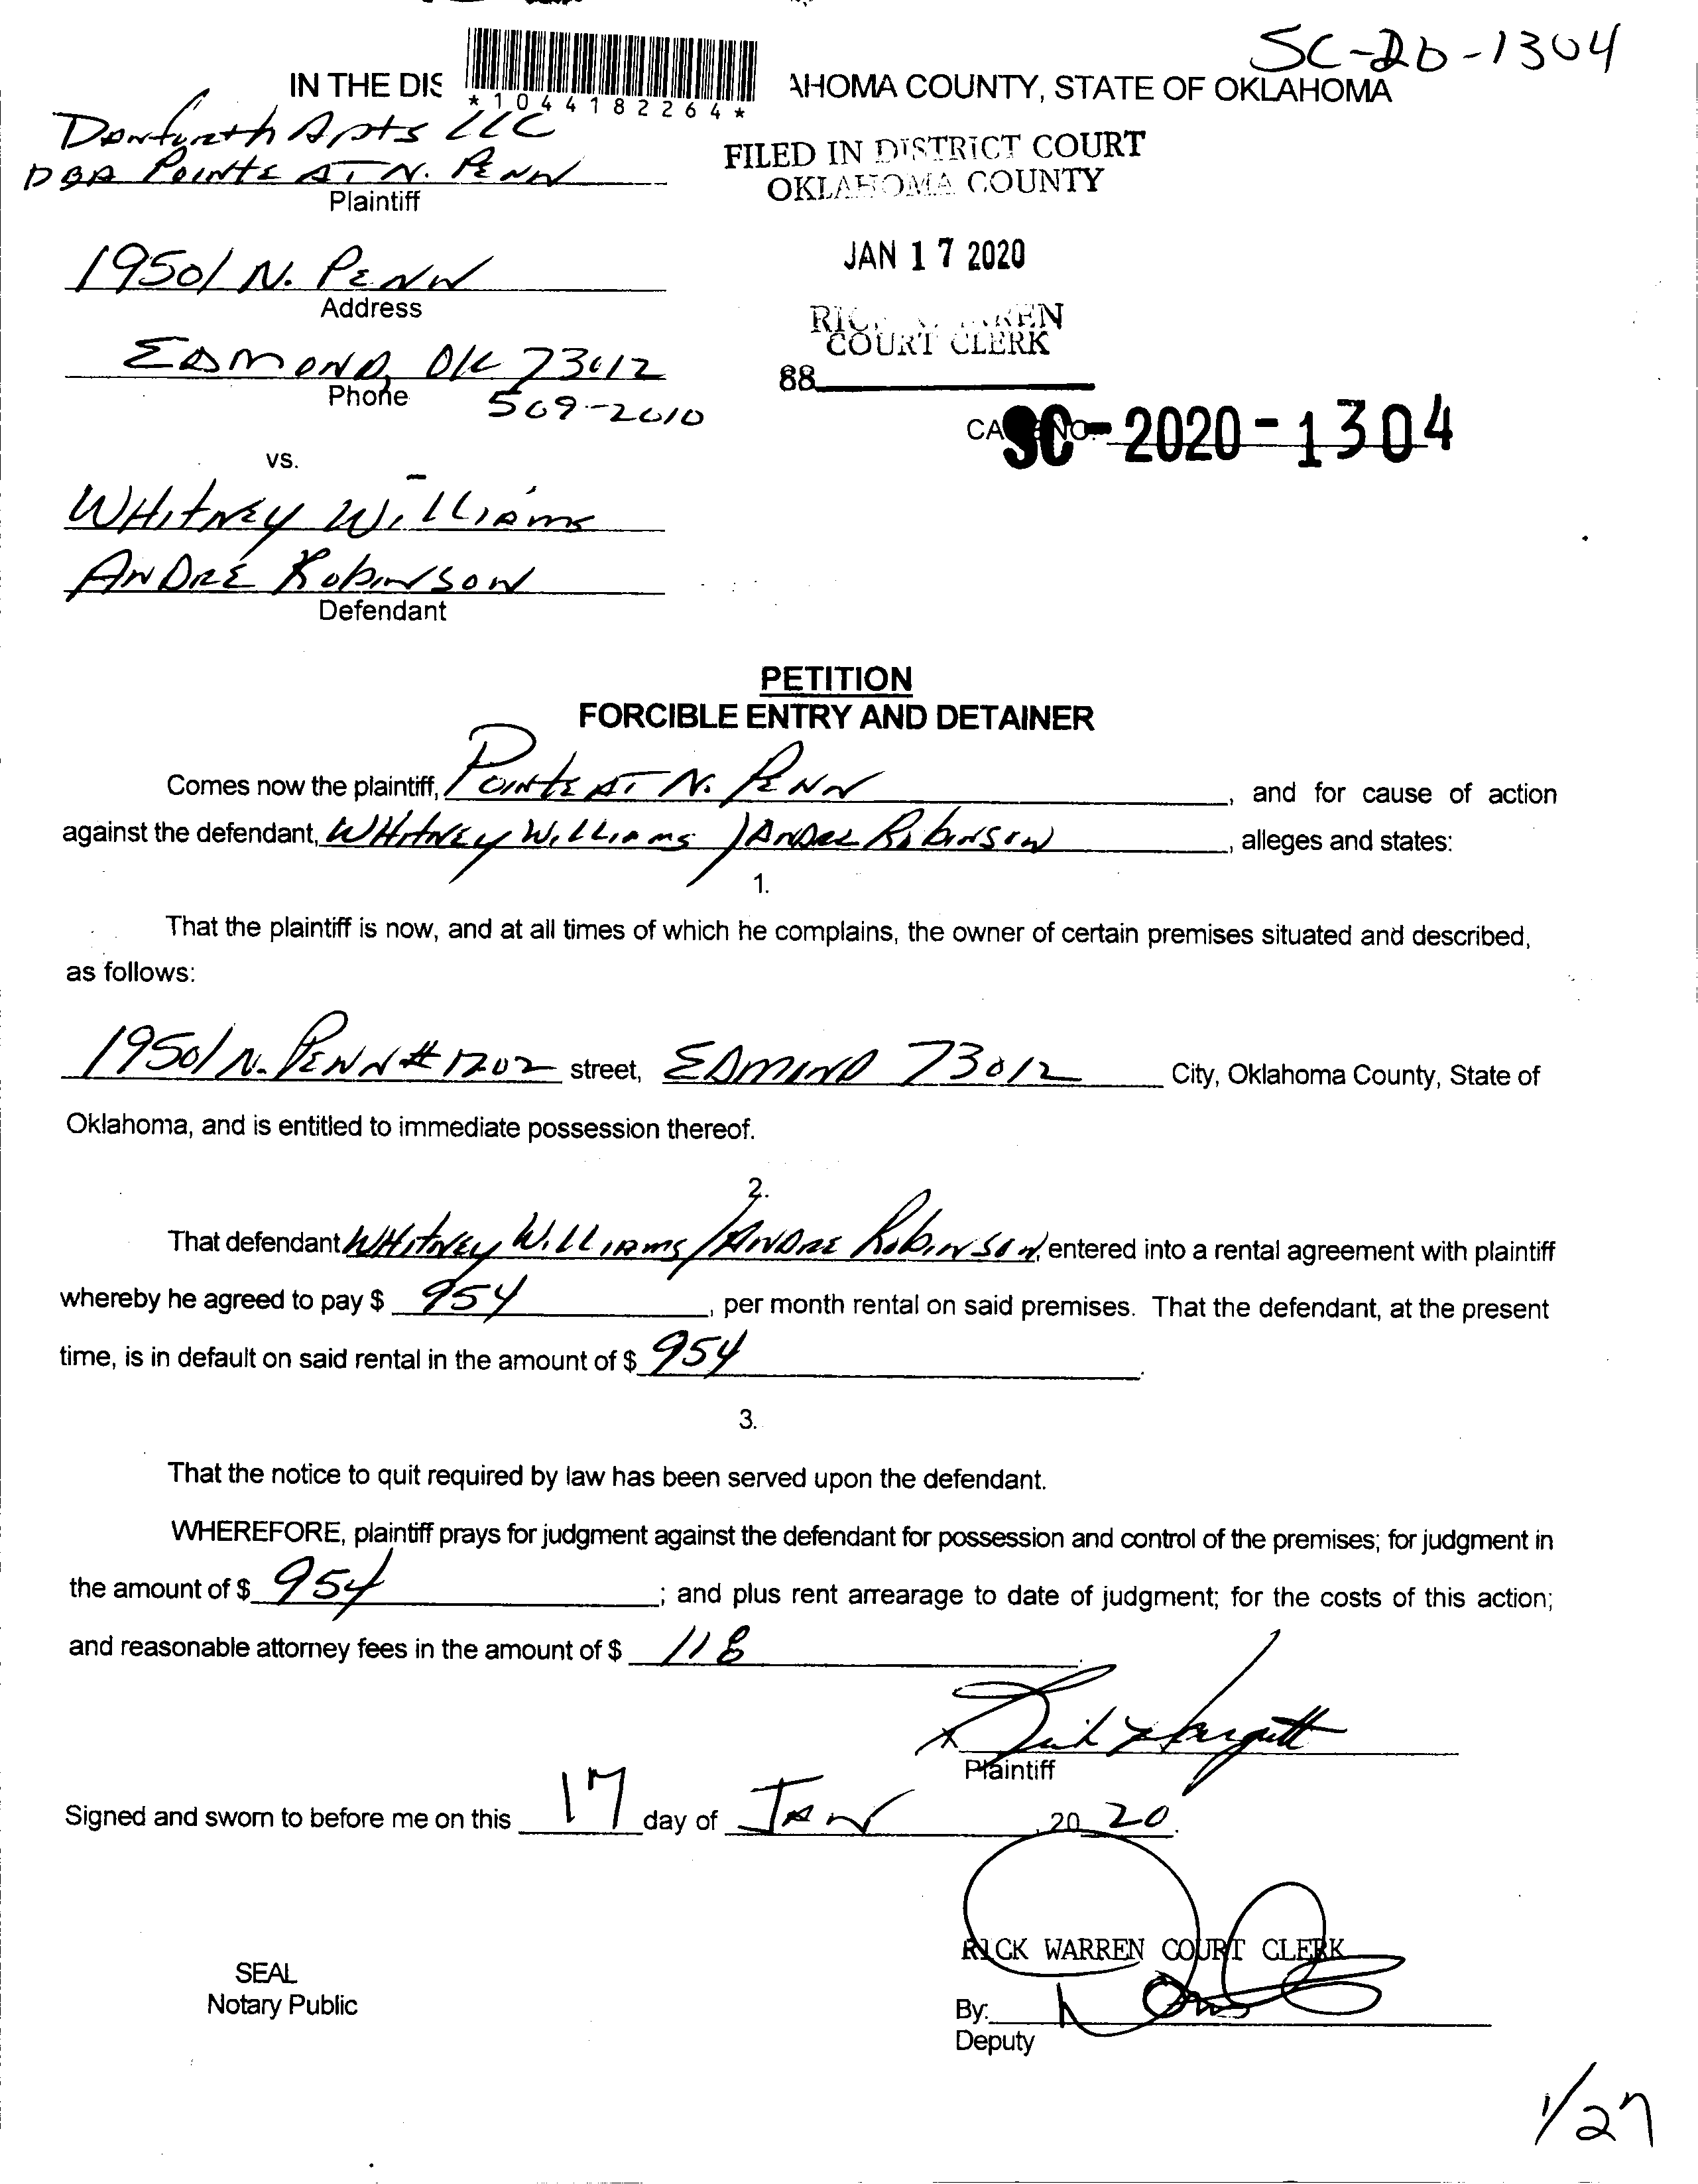 SC-20-1304
IN THE DIS AHOMA COUNTY, STATE OF OKLAHOMA
*1044182264*
Danforth Apts LLC
DBA POINTE AT N. PENN
Plaintiff
FILED IN DISTRICT COURT
OKLAHOMA COUNTY
JAN 17 2020
COURT CLERK
88
19501 N. PENN
Address
EDMOND, OK 73012
Phone 509-2010
CASE NO. SC-2020-1304
vs.
WHITNEY WILLIAMS
ANDRE ROBINSON
Defendant
PETITION
FORCIBLE ENTRY AND DETAINER
Comes now the plaintiff, POINTE AT N. PENN, and for cause of action
against the defendant, WHITNEY WILLIAMS / ANDRE ROBINSON, alleges and states:
1.
That the plaintiff is now, and at all times of which he complains, the owner of certain premises situated and described,
as follows:
19501 N. PENN # 1202 street, EDMOND 73012 City, Oklahoma County, State of
Oklahoma, and is entitled to immediate possession thereof.
2.
That defendant WHITNEY WILLIAMS / ANDRE ROBINSON, entered into a rental agreement with plaintiff
whereby he agreed to pay $ 954, per month rental on said premises. That the defendant, at the present
time, is in default on said rental in the amount of $ 954.
3.
That the notice to quit required by law has been served upon the defendant.
WHEREFORE, plaintiff prays for judgment against the defendant for possession and control of the premises; for judgment in
the amount of $ 954; and plus rent arrearage to date of judgment; for the costs of this action;
and reasonable attorney fees in the amount of $ 118.
X
Plaintiff
Signed and sworn to before me on this 17 day of JAN, 20 20.
RICK WARREN COURT CLERK
SEAL
Notary Public
By:
Deputy
1/27